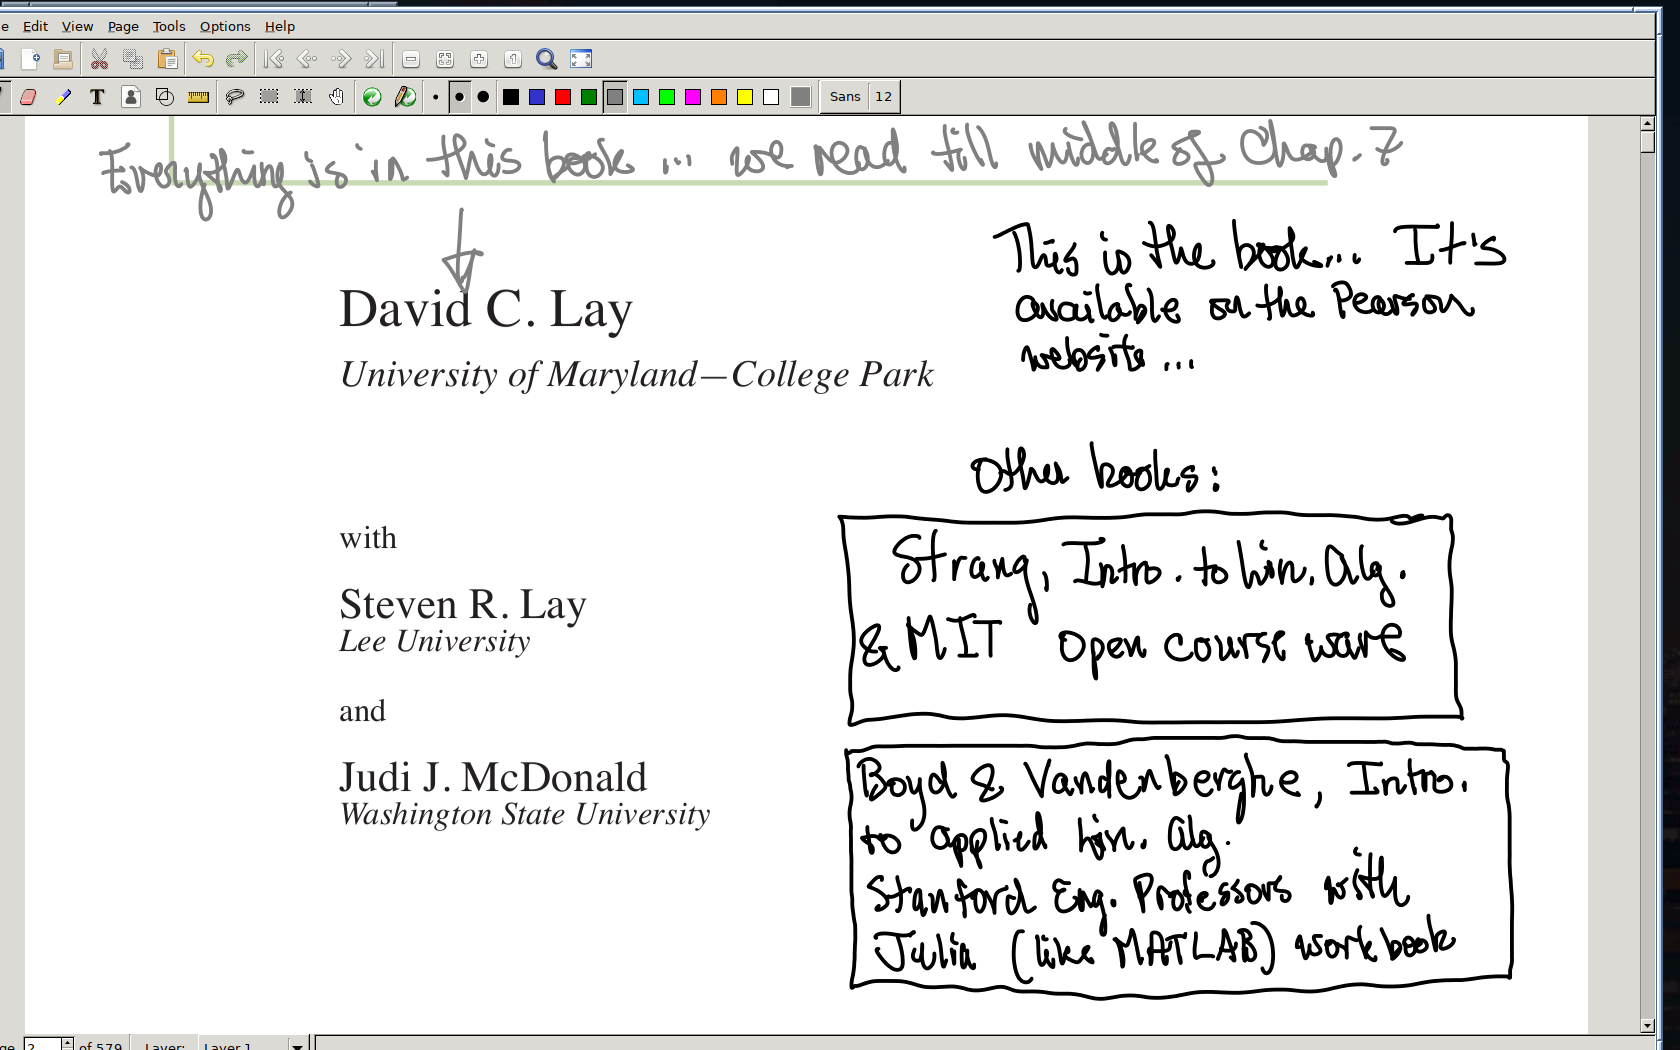 e Edit View Page Tools Options Help
Sans 12
Everything is in this book ... we read till middle of Chap. 7
This is the book... It's
available on the Pearson
website ...
David C. Lay
University of Maryland—College Park
Other books:
with
Steven R. Lay
Lee University
and
Judi J. McDonald
Washington State University
Strang, Intro. to Lin. Alg.
& MIT Open course ware
Boyd & Vandenberghe, Intro.
to applied Lin. Alg.
Stanford Eng. Professors with
Julia (like MATLAB) workbook
ge 2 of 579 Layer: Layer 1